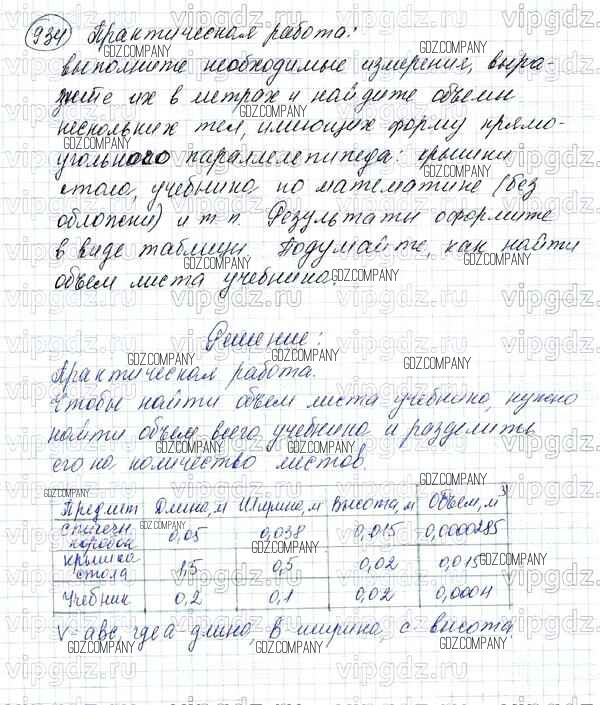 934 Практическая работа:
выполните необходимые измерения, выра-
зите их в метрах и найдите объемы
нескольких тел, имеющих форму прямо-
угольного параллелепипеда: крышки
стола, учебника по математике (без
обложки) и т.п. Результаты оформите
в виде таблицы Подумайте, как найти
объем листа учебника.
Решение:
Практическая работа.
Чтобы найти объем листа учебника, нужно
найти объем всего учебника и разделить
его на количество листов.
Предмет Длина, м Ширина, м Высота, м Объем, м³
спичечн. коробок 0,05 0,038 0,015 0,0000285
крышка стола 1,5 0,5 0,02 0,015
Учебник 0,2 0,1 0,02 0,0004
V=авс, где а длина, в-ширина, с-высота
GDZ.COMPANY
vipgdz.ru